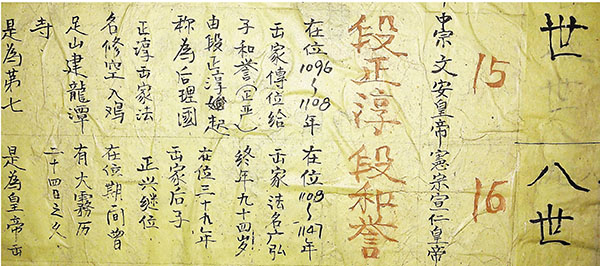 世
15
中宗文安皇帝
段正淳
在位1096~1108年
出家傳位給
子和誉(正严)
由段正淳始起
称為后理國
正淳出家法
名修空入鸡
足山建龍潭
寺
是為第七
八世
16
憲宗宣仁皇帝
段和誉
在位1108~1147年
出家法名弘
終年九十四岁
在位三十九年
出家后子
正兴继位
在位期间曾
有大霧历
二十四日之久
是為皇帝出